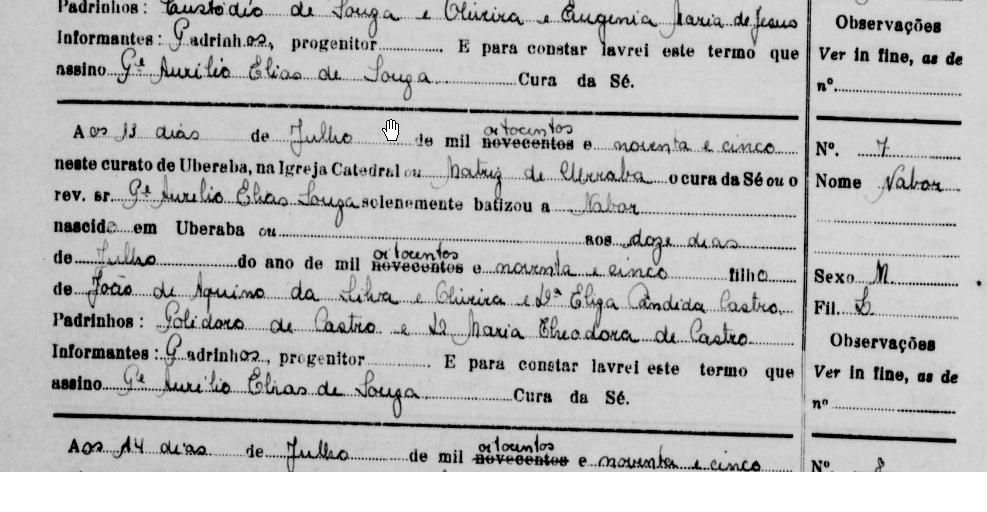 Padrinhos: Custódio de Souza e Oliveira e Eugenia Maria de Jesus
Informantes: Padrinhos, progenitor............ E para constar lavrei este termo que
assino Pe Aurélio Elias de Souza ............ Cura da Sé.
Observações
Ver in fine, as de
nº............
Aos 13 dias de Julho de mil oitocentos novecentos e noventa e cinco
neste curato de Uberaba, na Igreja Catedral ou Matriz de Uberaba o cura da Sé ou o
rev. sr. Pe Aurelio Elias Souza solenemente batizou a Nabor
nascido em Uberaba ou............ aos doze dias
de Julho do ano de mil oitocentos novecentos e noventa e cinco filho
de João de Aquino da Silva e Oliveira e Dª Eliza Cândida Castro.
Padrinhos: Polidoro de Castro e D Maria Theodora de Castro
Informantes: Padrinhos, progenitor............ E para constar lavrei este termo que
assino Pe Aurélio Elias de Souza ............ Cura da Sé.
Nº. 7
Nome Nabor
Sexo M
Fil. L
Observações
Ver in fine, as de
nº............
Aos 14 dias de Julho de mil oitocentos novecentos e noventa e cinco
Nº 8